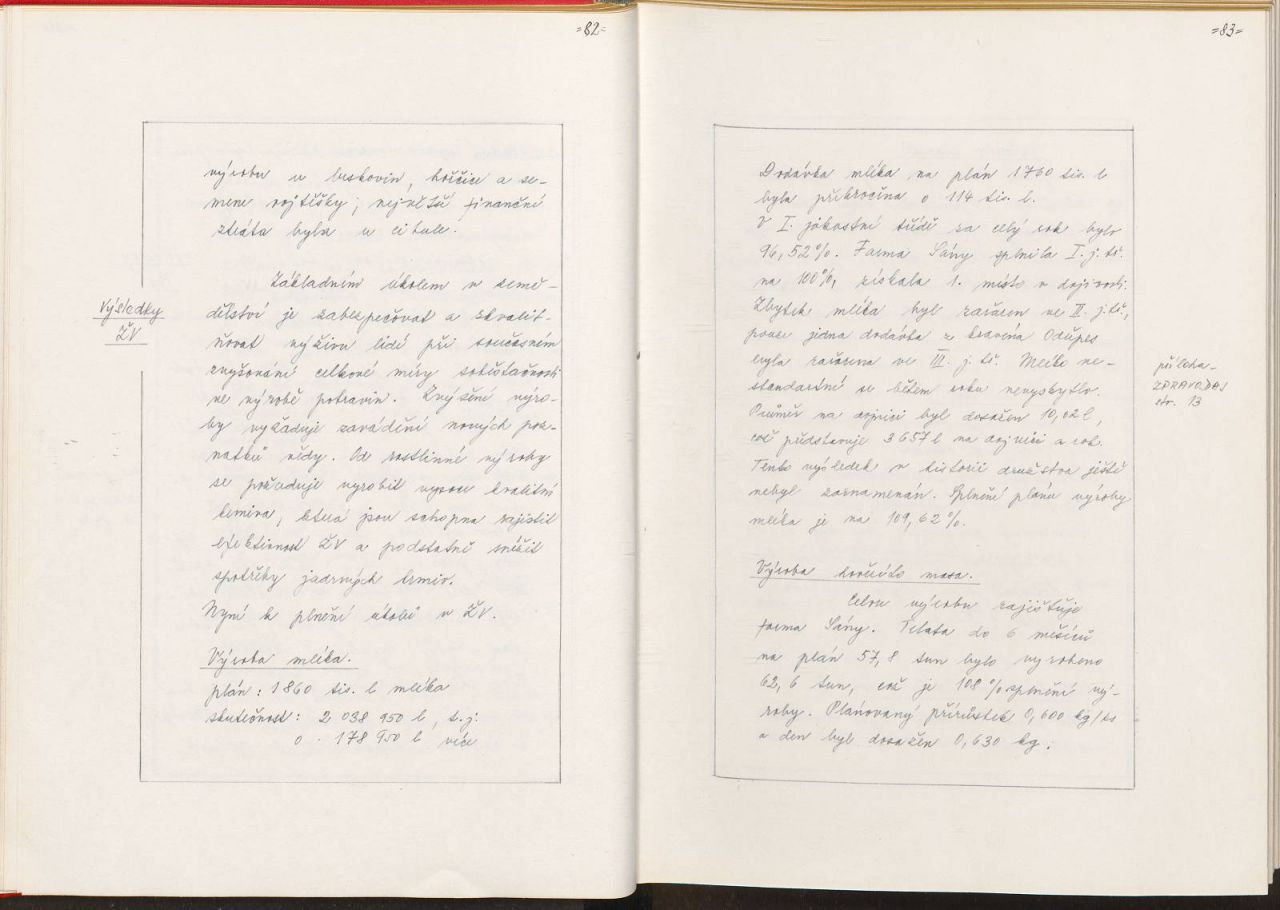 =82=
výrobu u luskovin, hořčice a se-
mene vojtěšky; největší finanční
ztráta byla u cibule.
Výsledky
ŽV
Základním úkolem v země-
dělství je zabezpečovat a zkvalit-
ňovat výživu lidí při současném
zvyšování celkové míry soběstačnosti
ve výrobě potravin. Zvýšení výro-
by vyžaduje zavádění nových poz-
natků vědy. Od rostlinné výroby
se požaduje vyrobit vysoce kvalitní
krmiva, která jsou schopna zajistit
efektivnost ŽV a podstatně snížit
spotřeby jadrných krmiv.
Nyní k plnění úkolů v ŽV.
Výroba mléka.
plán: 1860 tis. l mléka
skutečnost: 2 038 950 l, t.j.
o 178 950 l více
=83=
Dodávka mléka na plán 1760 tis. l
byla překročena o 114 tis. l.
V I. jakostní třídě za celý rok bylo
96,52%. Farma Sány splnila I. j. tř.
na 100%, získala 1. místo v dojivosti.
Zbytek mléka byl zařazen ve II. j. tř.,
pouze jedna dodávka z kravína Odřepes
byla zařazena ve III. j. tř. Mléko ne-
standartní se během roku nevyskytlo.
Průměr na dojnici byl dosažen 10,02 l,
což představuje 3657 l na dojnici a rok.
Tento výsledek v historii družstva ještě
nebyl zaznamenán. Splnění plánu výroby
mléka je na 109,62%.
příloha-
ZPRAVODAJ
str. 13
Výroba hovězího masa.
Celou výrobu zajišťuje
farma Sány. Telata do 6 měsíců
na plán 57,8 tun bylo vyrobeno
62,6 tun, což je 108% splnění vý-
roby. Plánovaný přírůstek 0,600 kg/ks
a den byl dosažen 0,630 kg.